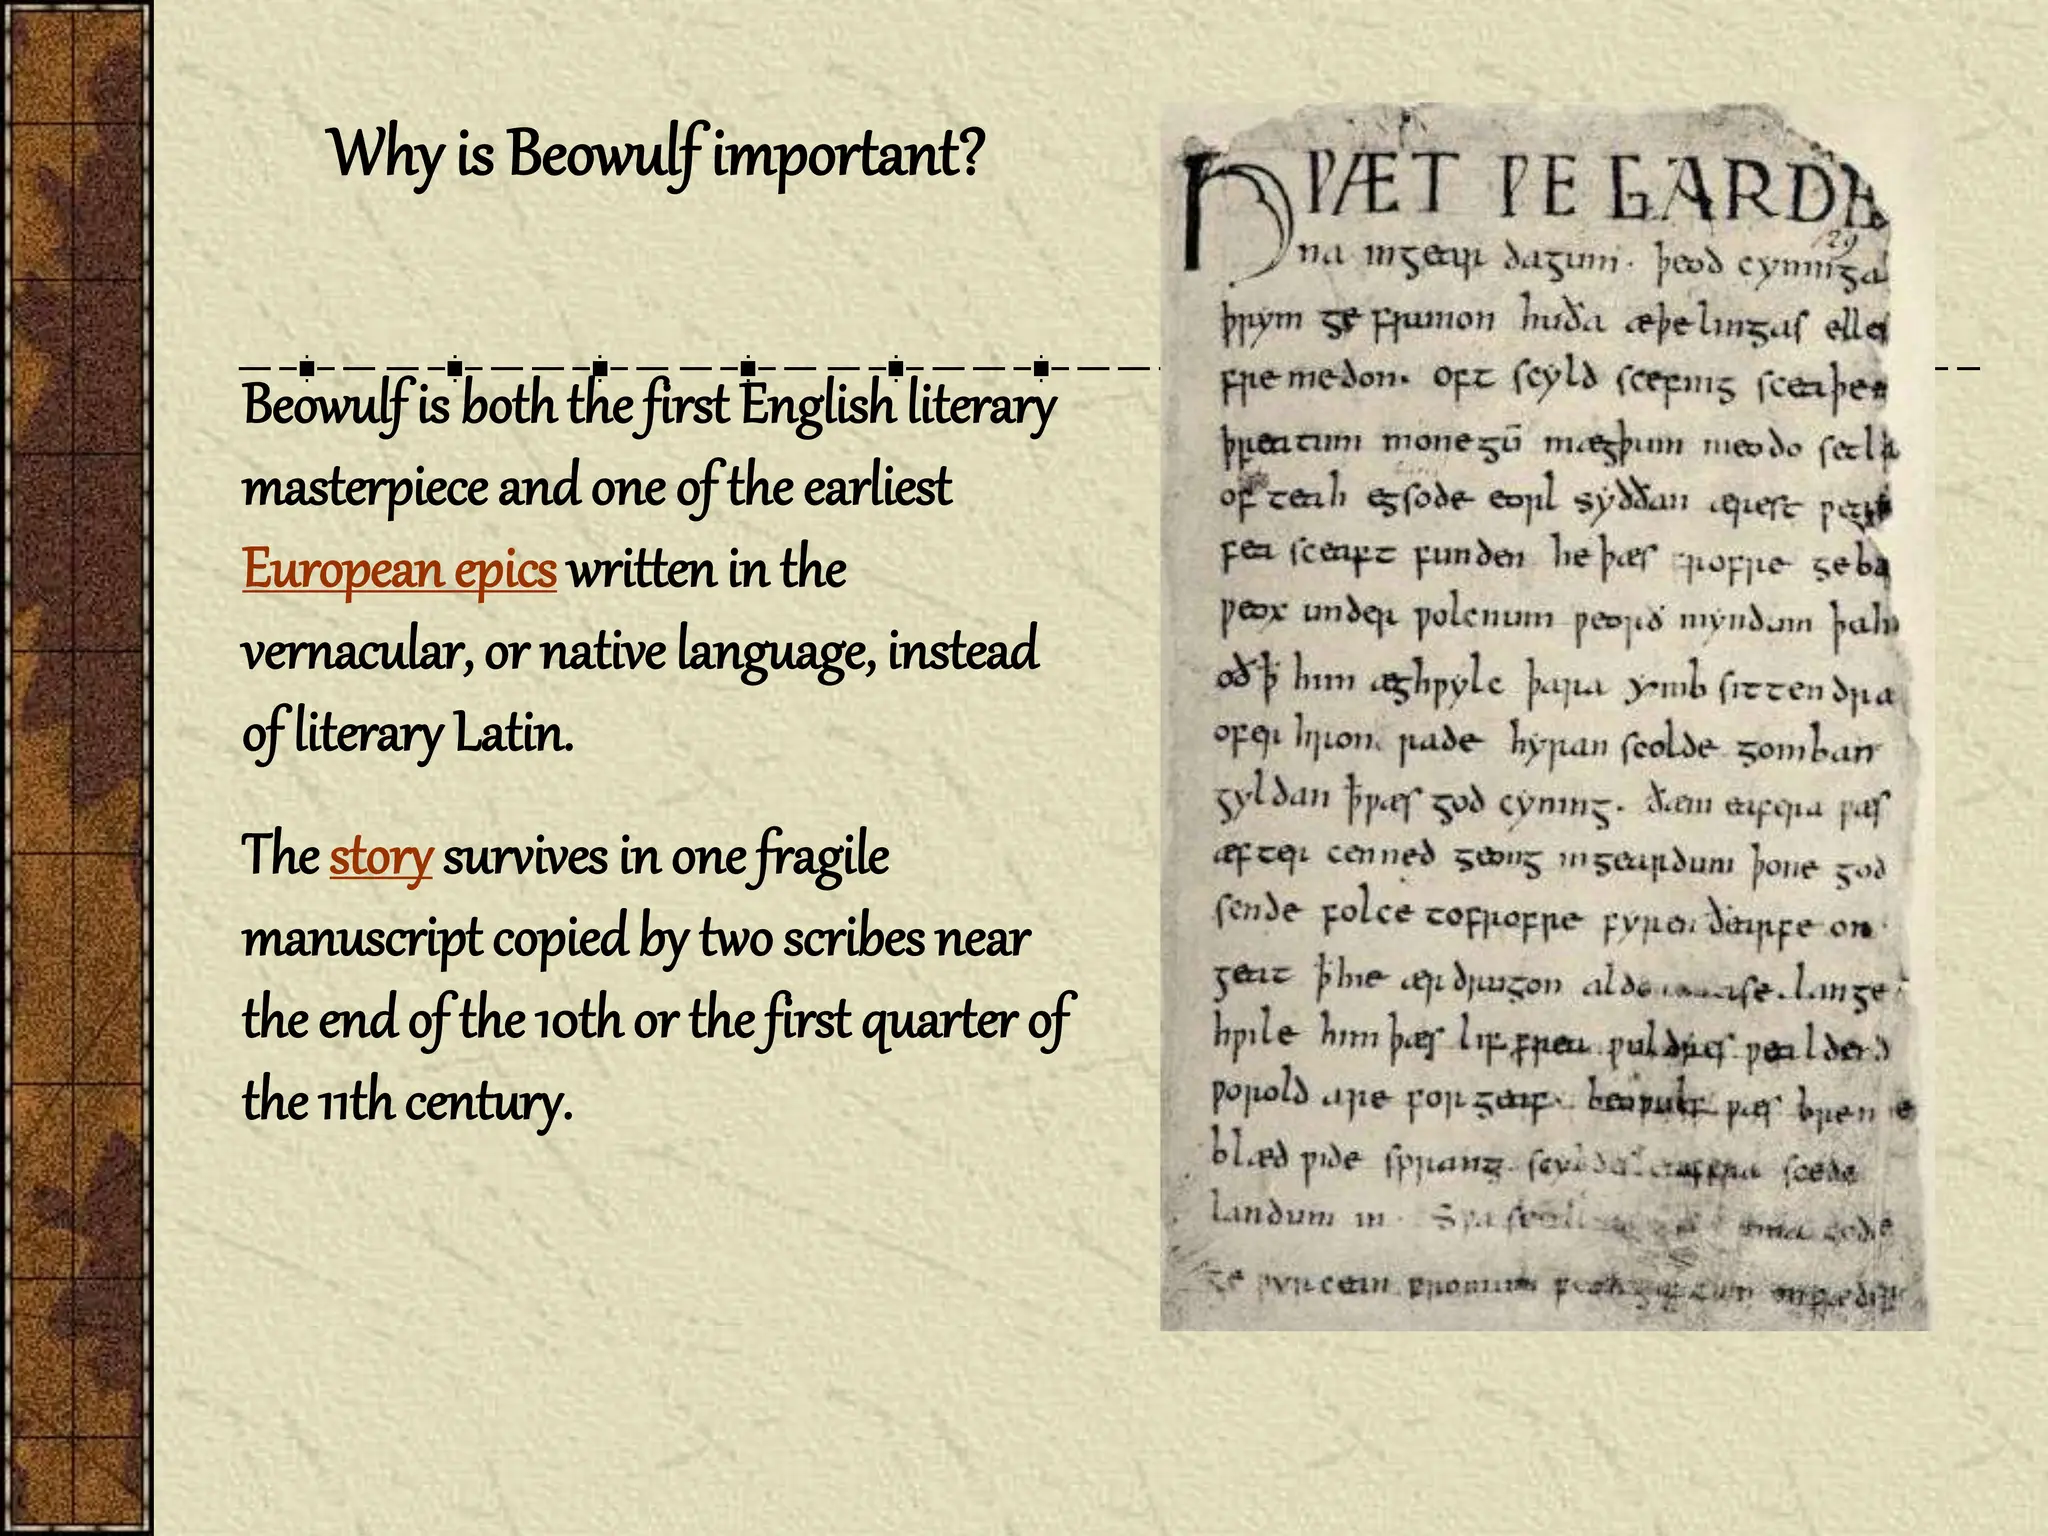 Why is Beowulf important?
Beowulf is both the first English literary
masterpiece and one of the earliest
European epics written in the
vernacular, or native language, instead
of literary Latin.
The story survives in one fragile
manuscript copied by two scribes near
the end of the 10th or the first quarter of
the 11th century.
HǷÆT ǷE GARDE
129
na ingear dagum. þeod cyninga
þrym ge frunon huða æþelingas elle
fremedon. oft scyld scefing sceaþe
þreatum monegū mægþum meodo setla
of teah egsode eorl syððan ærest ƿear
fea sceaft funden he þæs frofre geba
ƿeox under ƿolcnum ƿeorð myndum þah
oð ꝥ him æghƿylc þara ymb sittendra
ofer hron rade hyran scolde gomban
gyldan ꝥ ƿæs god cyning. ðæm eafera ƿæs
æfter cenned geong ingeardum þone god
sende folce tofrofre fyren ðearfe on
geat ꝥ hie ær drugon lange
hƿile him þæs lif frea ƿuldres ƿealdend
ƿorold are for geaf. beoƿulf ƿæs breme
blæd ƿide sprang scyldes eafera scede
landum in. Sƿa gode
ge ƿyrcean fromum feoh